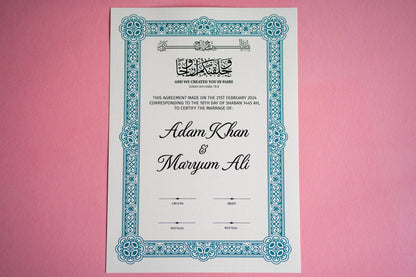 وخلقنكم أزوجا
AND WE CREATED YOU IN PAIRS
THIS AGREEMENT MADE ON THE 21ST FEBRUARY 2024
CORRESPONDING TO THE 10TH DAY OF SHABAN 1445 AH,
TO CERTIFY THE MARRIAGE OF:
Adam Khan
&
Maryum Ali
GROOM BRIDE
WITNESS WITNESS